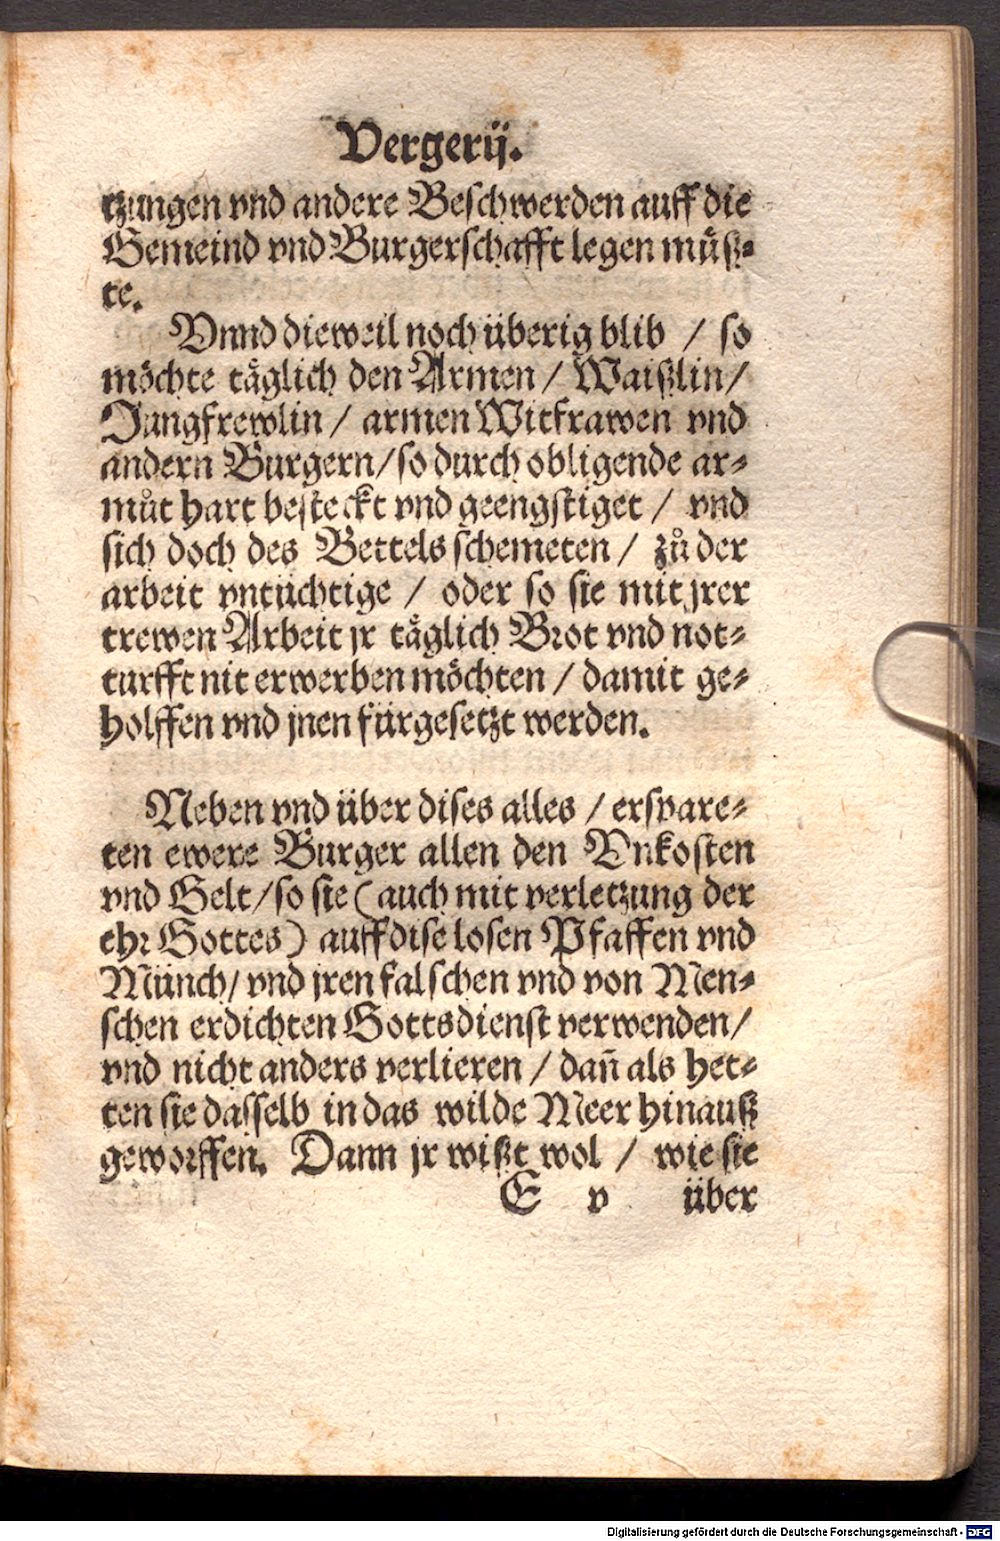 Vergerij.
tzungen vnd andere Beschwerden auff die
Gemeind vnd Burgerschafft legen muͤß-
te.
Vnnd dieweil noch überig blib / so
moͤchte taͤglich den Armen / Waißlin /
Jungfrewlin / armen Witfrawen vnd
andern Burgern / so durch obligende ar-
muͦt hart besteckt vnd geengstiget / vnd
sich doch des Bettels schemeten / zuͦ der
arbeit vntüchtige / oder so sie mit jrer
trewen Arbeit jr taͤglich Brot vnd not-
turfft nit erwerben moͤchten / damit ge-
holffen vnd jnen fürgesetzt werden.
Neben vnd über dises alles / erspare-
ten ewere Burger allen den Vnkosten
vnd Gelt / so sie (auch mit verletzung der
ehr Gottes) auff dise losen Pfaffen vnd
Münch / vnd jren falschen vnd von Men-
schen erdichten Gottsdienst verwenden /
vnd nicht anders verlieren / dañ als het-
ten sie dasselb in das wilde Meer hinauß
geworffen. Dann jr wißt wol / wie sie
E v über
Digitalisierung gefördert durch die Deutsche Forschungsgemeinschaft - DFG